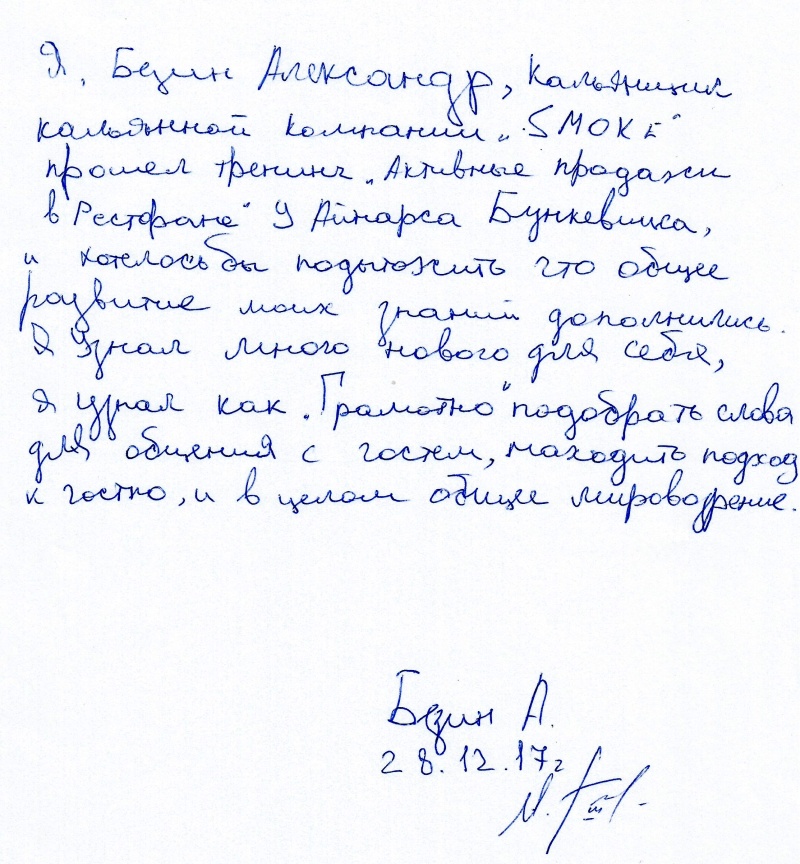 Я, Безин Александр, Кальянщик
кальянной компании „SMOKE"
прошел тренинг „Активные продажи
в Ресторане" У Айнарса Бункевичса,
и хотелось бы подытожить что общее
развитие моих знаний дополнились.
Я Узнал много нового для себя,
я узнал как „Грамотно" подобрать слова
для общения с гостем, находить подход
к гостю, и в целом общее мировозрение.
Безин А.
28.12.17г